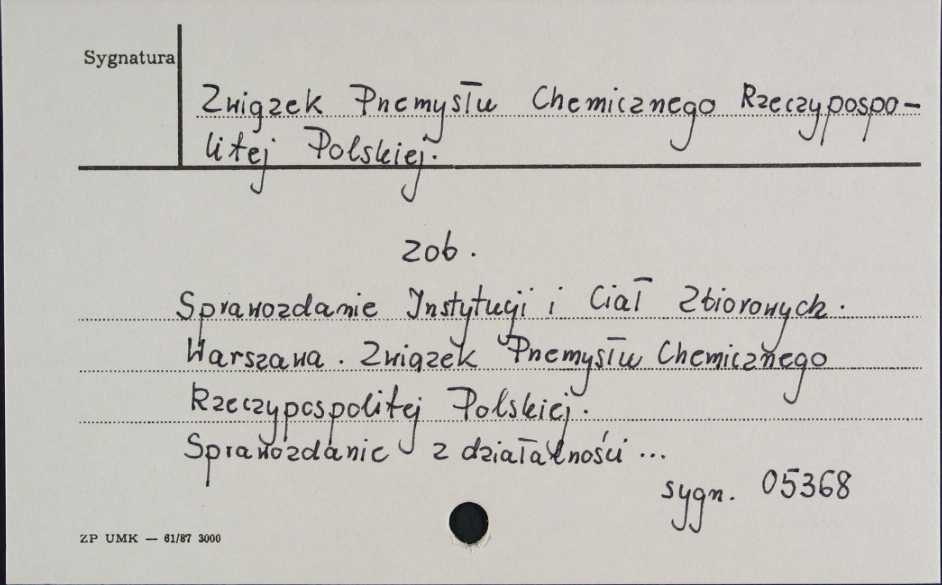 Sygnatura
Związek Przemysłu Chemicznego Rzeczypospo-
litej Polskiej.
zob.
Sprawozdanie Instytucji i Ciał Zbiorowych.
Warszawa. Związek Przemysłu Chemicznego
Rzeczypospolitej Polskiej.
Sprawozdanie z działalności ...
sygn. 05368
ZP UMK — 61/87 3000